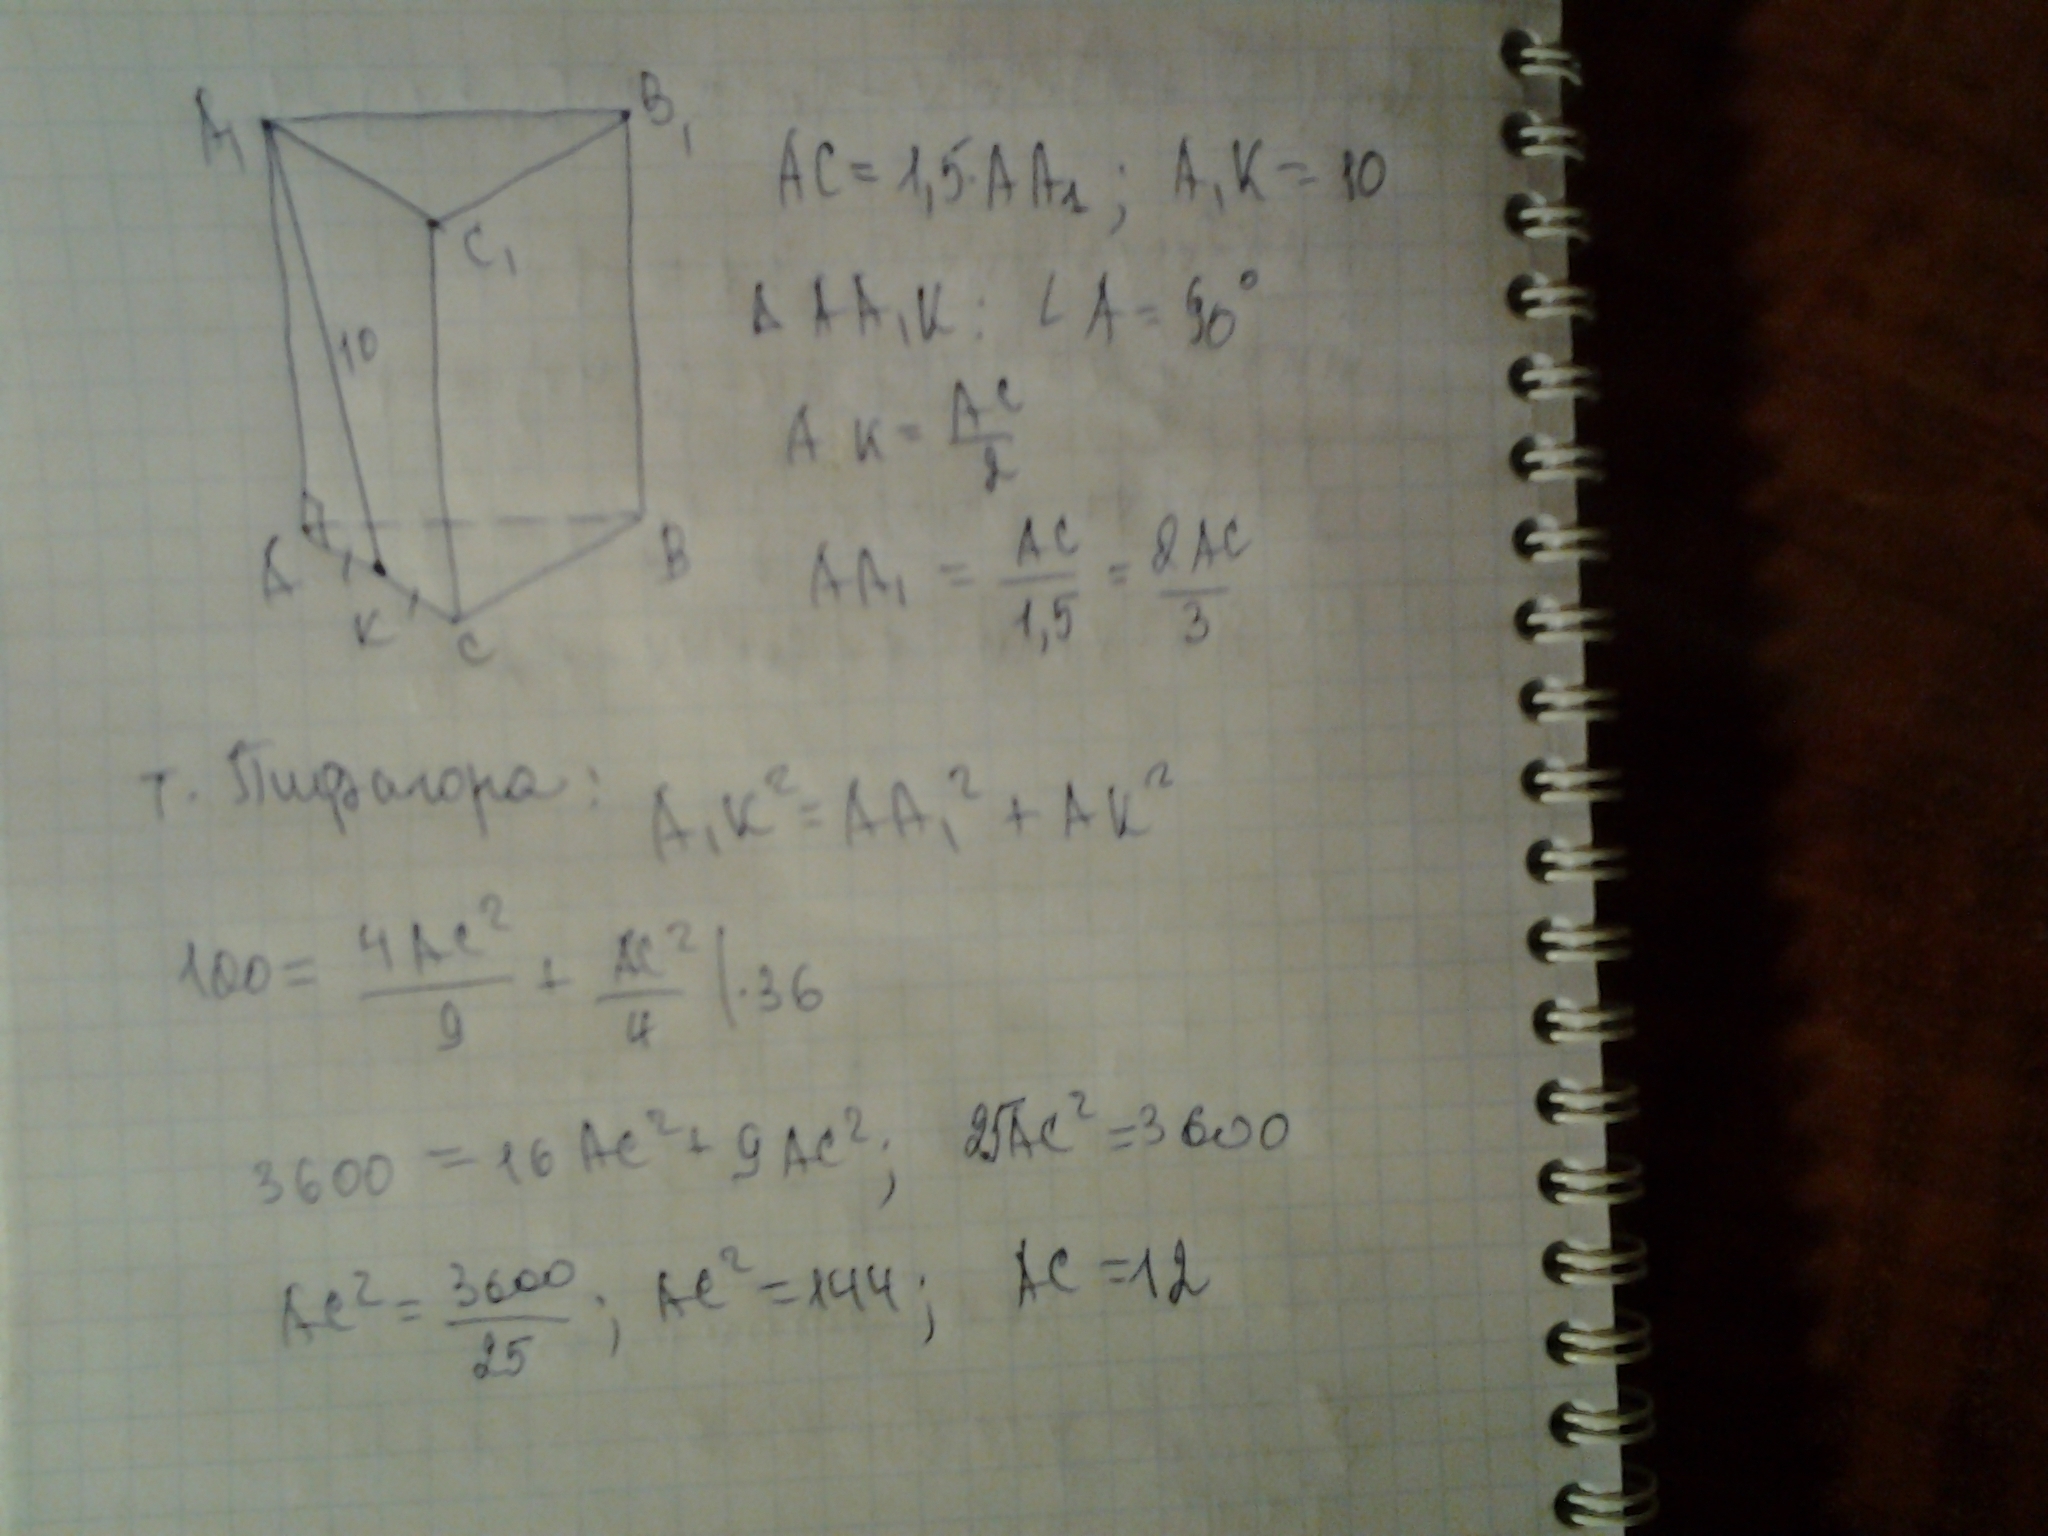 A₁ B₁
C₁
10
A B
K C
AC = 1,5·AA₁; A₁K = 10
Δ AA₁K: ∠A = 90°
AK = AC/2
AA₁ = AC/1,5 = 2AC/3
т. Пифагора: A₁K² = AA₁² + AK²
100 = 4AC²/9 + AC²/4 |·36
3600 = 16AC² + 9AC²; 25AC² = 3600
AC² = 3600/25; AC² = 144; AC = 12